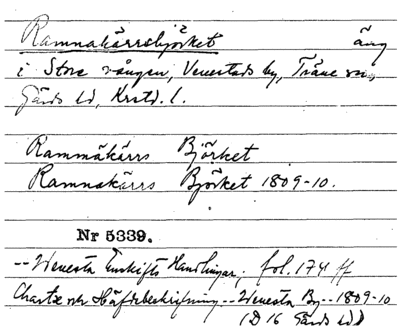 Ramnakärrsbjörket äng
i Store vången, Venestads by, Träne sn,
Gärds hd, Krstd. l.
Rammäkärrs Björket
Ramnakärrs Björket 1809-10.
Nr 5339.
--Wenesta Enskifts Handlingar, fol. 174 ff
Chartæ och Häfdebeskrifning--Wenesta By--1809-10
(D 16 Gärds hd)